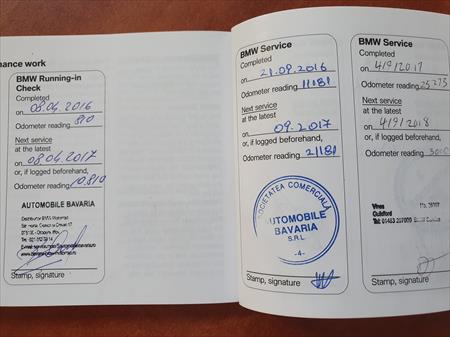 nance work
BMW Running-in
Check
Completed
on 08.04.2016
Odometer reading 810
Next service
at the latest
on 08.04.2017
or, if logged beforehand,
Odometer reading 10.810
AUTOMOBILE BAVARIA
Stamp, signature
BMW Service
Completed
on 21.09.2016
Odometer reading 11181
Next service
at the latest
on 09.2017
or, if logged beforehand,
Odometer reading 21181
SOCIETATEA COMERCIALĂ
AUTOMOBILE
BAVARIA
S.R.L.
-4-
Stamp, signature
BMW Service
Completed
on 4/9/2017
Odometer reading 25275
Next service
at the latest
on 4/9/2018
or, if logged beforehand,
Odometer reading
Vines
Guildford
Tel: 01483 207000
Stamp, signature